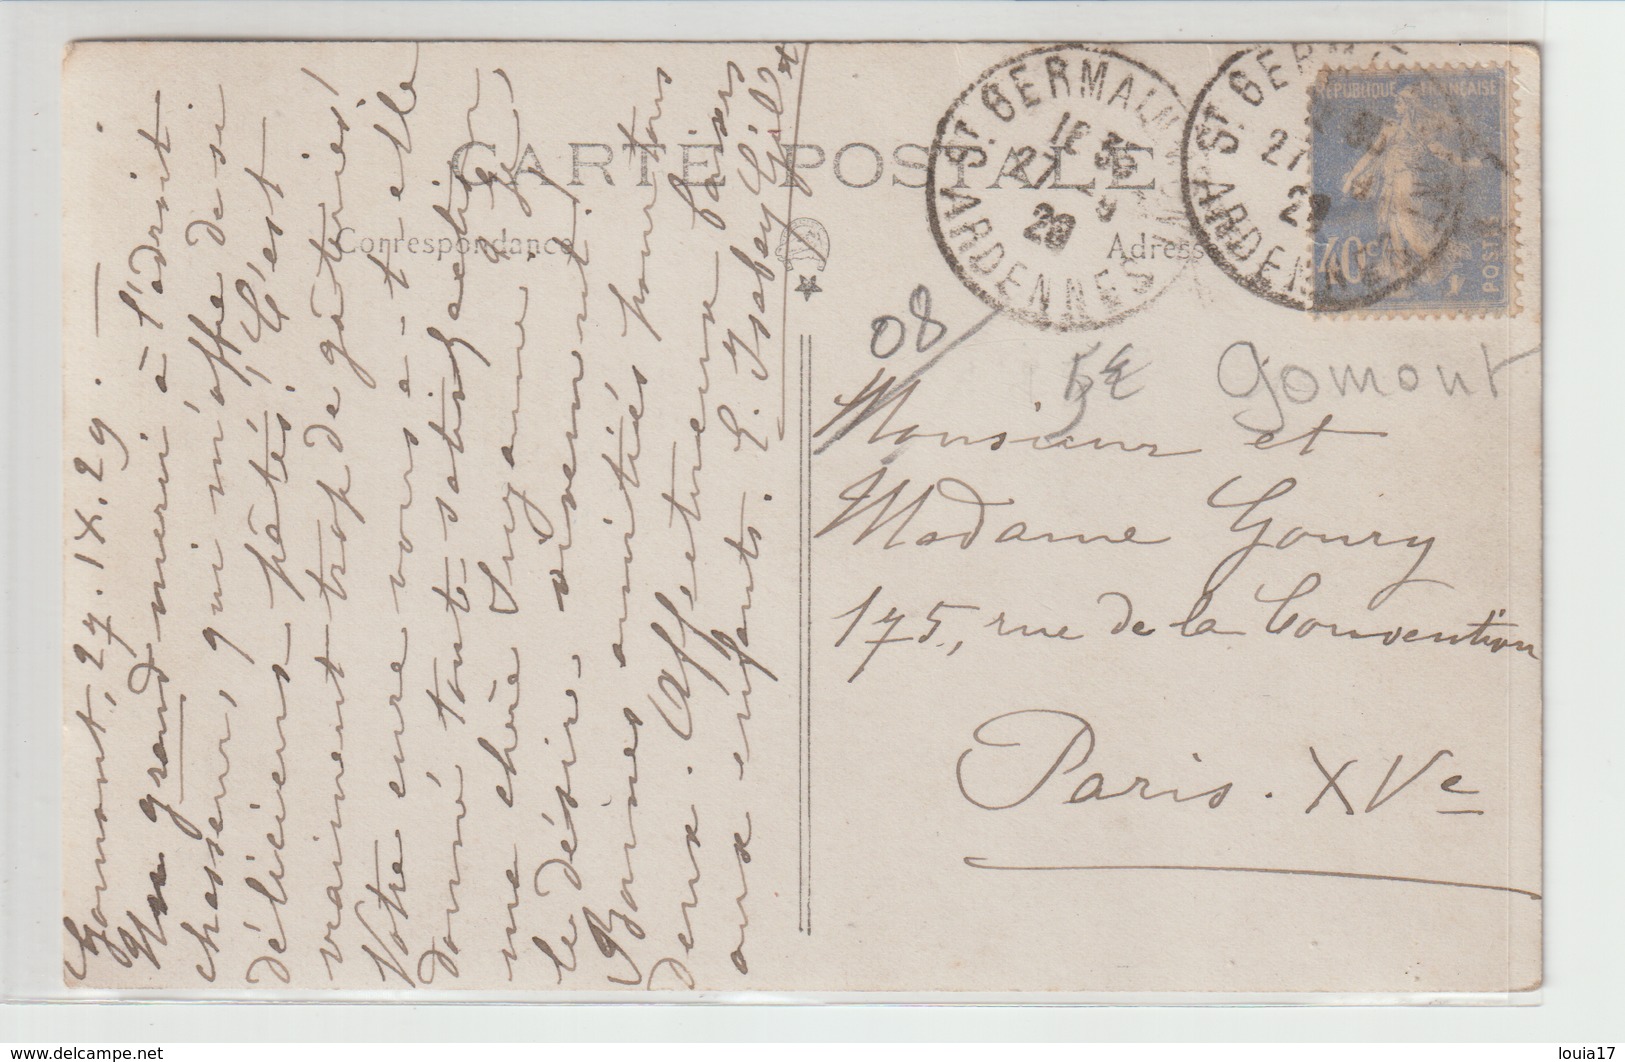 CARTE POSTALE
Correspondance
Adresse
Gomont, 27. IX. 29.
Un grand merci à l'adroit
chasseur, qui m'offre de si
délicieux pâtés! C'est
vraiment trop de gâteries!
Votre cure vous a-t-elle
donné toute satisfaction,
ma chère Suzanne? Je
le désire vivement!
Bonnes amitiés pour tous
deux. Affectueux baisers
aux enfants. E. Isabey Gilet
ST GERMAINMONT
16 30
27 9
29
ARDENNES
ST GERM
27
29
ARDENNES
RÉPUBLIQUE FRANÇAISE
40c
POSTES
08
5€
Gomont
Monsieur et
Madame Goury
175, rue de la Convention
Paris. XVe
www.delcampe.net
louia17